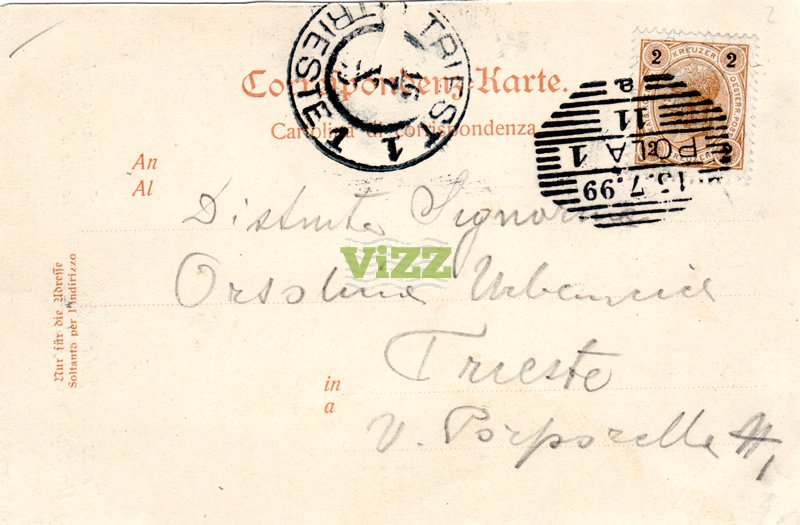 Correspondenz-Karte.
Cartolina di corrispondenza
TRIEST
TRIESTE
1
2 KREUZER 2
OESTERR. POST
2
POLA 1
15.7.99
11
a
An
Al
Distinta Signorina
ViZZ
Orsolina
Trieste
in
a
V.
Nur für die Adresse
Soltanto per l'indirizzo